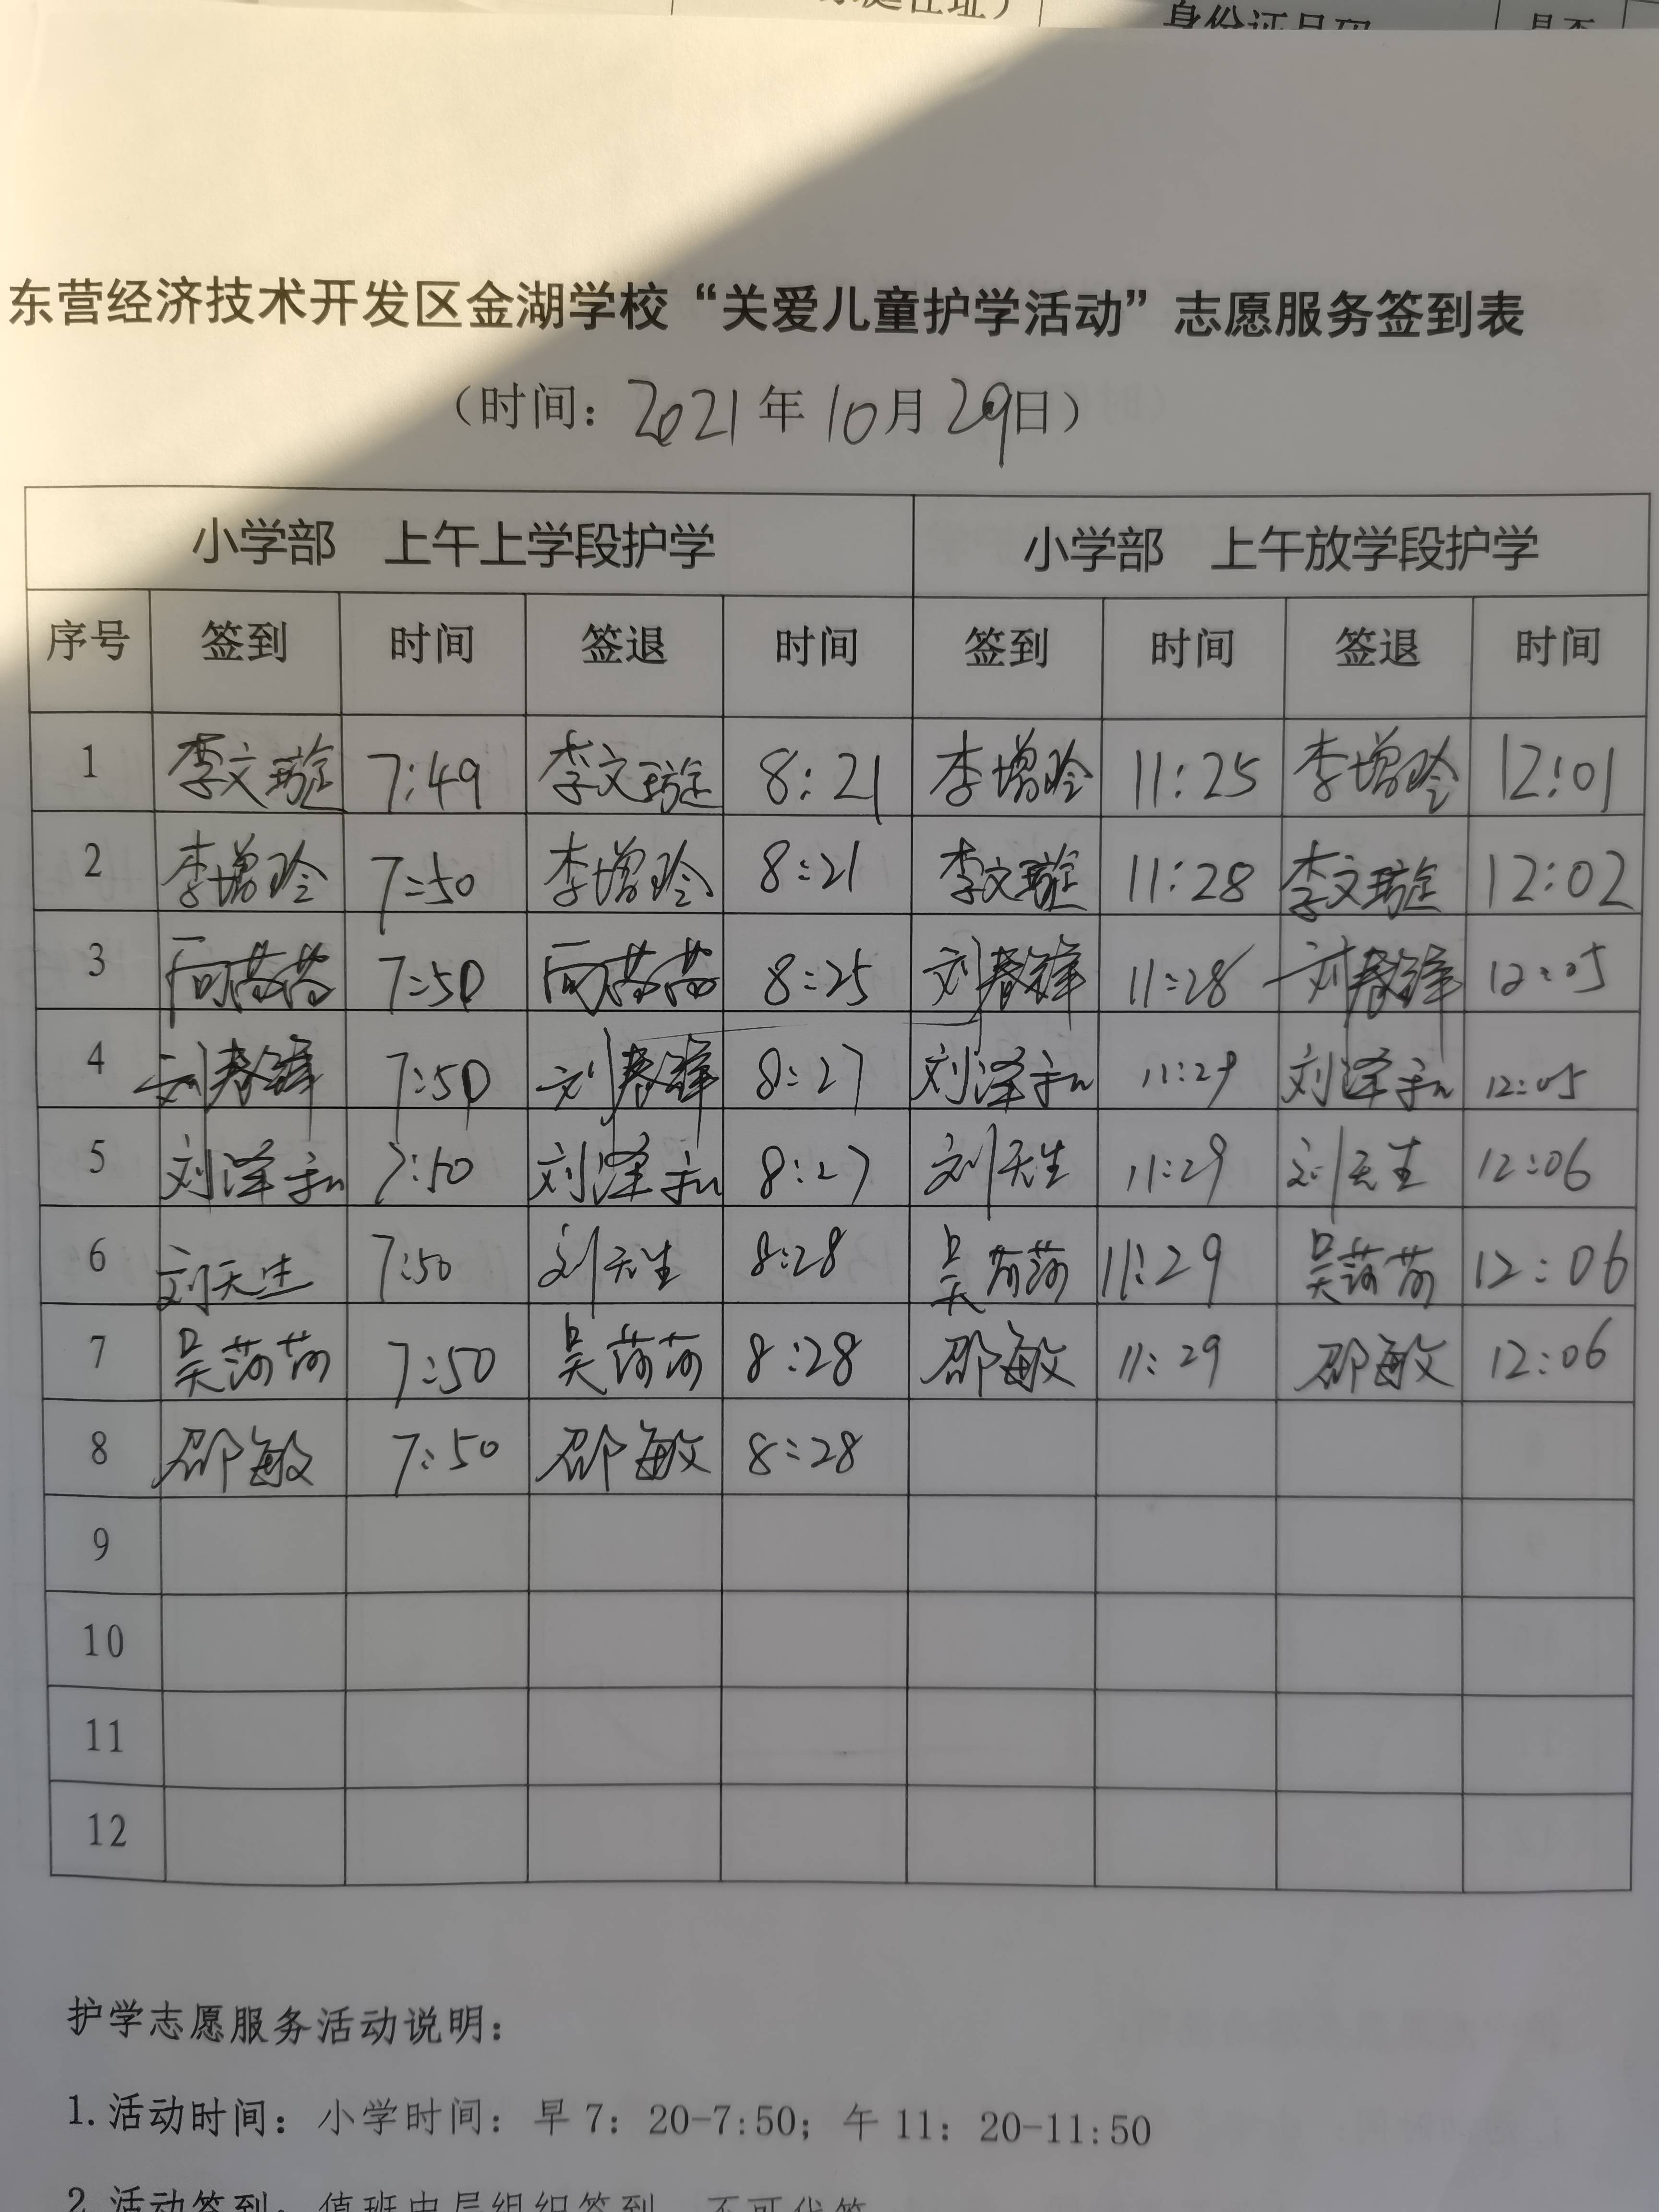 身份证号码
是否
东营经济技术开发区金湖学校“关爱儿童护学活动”志愿服务签到表
（时间：2021年10月29日）
小学部 上午上学段护学 小学部 上午放学段护学
序号 签到 时间 签退 时间 签到 时间 签退 时间
1 李文璇 7:49 李文璇 8:21 李增玲 11:25 李增玲 12:01
2 李增玲 7:50 李增玲 8:21 李文璇 11:28 李文璇 12:02
3 7:50 8:25 刘春锋 11:28 刘春锋 12:05
4 刘春锋 7:50 刘春锋 8:27 刘泽和 11:29 刘泽和 12:05
5 刘泽和 7:50 刘泽和 8:27 刘天生 11:29 刘天生 12:06
6 刘天生 7:50 刘天生 8:28 吴荷荷 11:29 吴荷荷 12:06
7 吴荷荷 7:50 吴荷荷 8:28 邵敏 11:29 邵敏 12:06
8 邵敏 7:50 邵敏 8:28
9
10
11
12
护学志愿服务活动说明：
1.活动时间：小学时间：早7：20-7:50；午11：20-11:50
2.活动签到：值班中层组织签到，不可代签